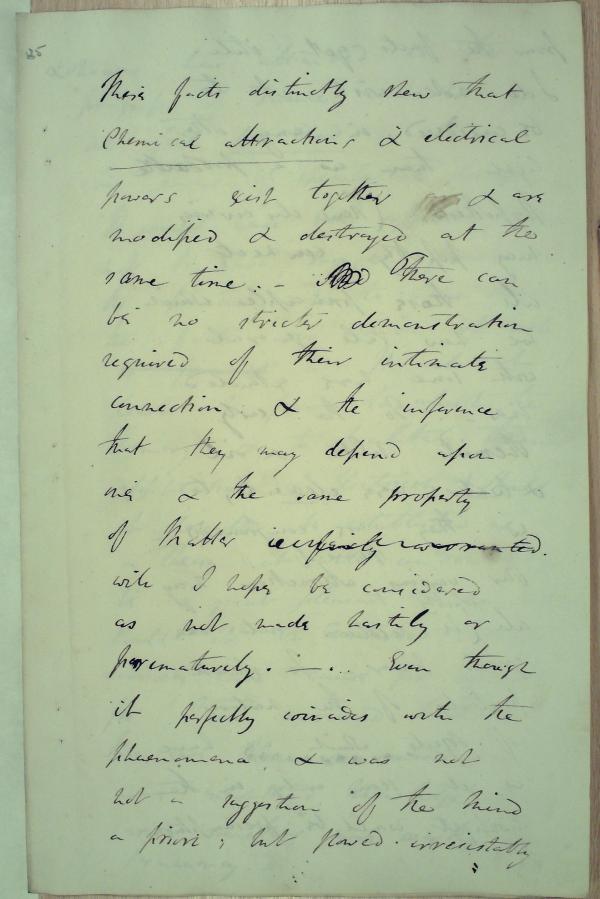 25
These facts distinctly shew that
Chemical attractions & electrical
powers exist together & are
modified & destroyed at the
same time. - There can
be no stricter demonstration
required of their intimate
connection & the inference
that they may depend upon
one & the same property
of Matter is warranted.
will I hope be considered
as not made hastily or
prematurely. —. . Even though
it perfectly coincides with the
phaenomena & was not
not a suggestion of the mind
a priori; but flowed irresistably